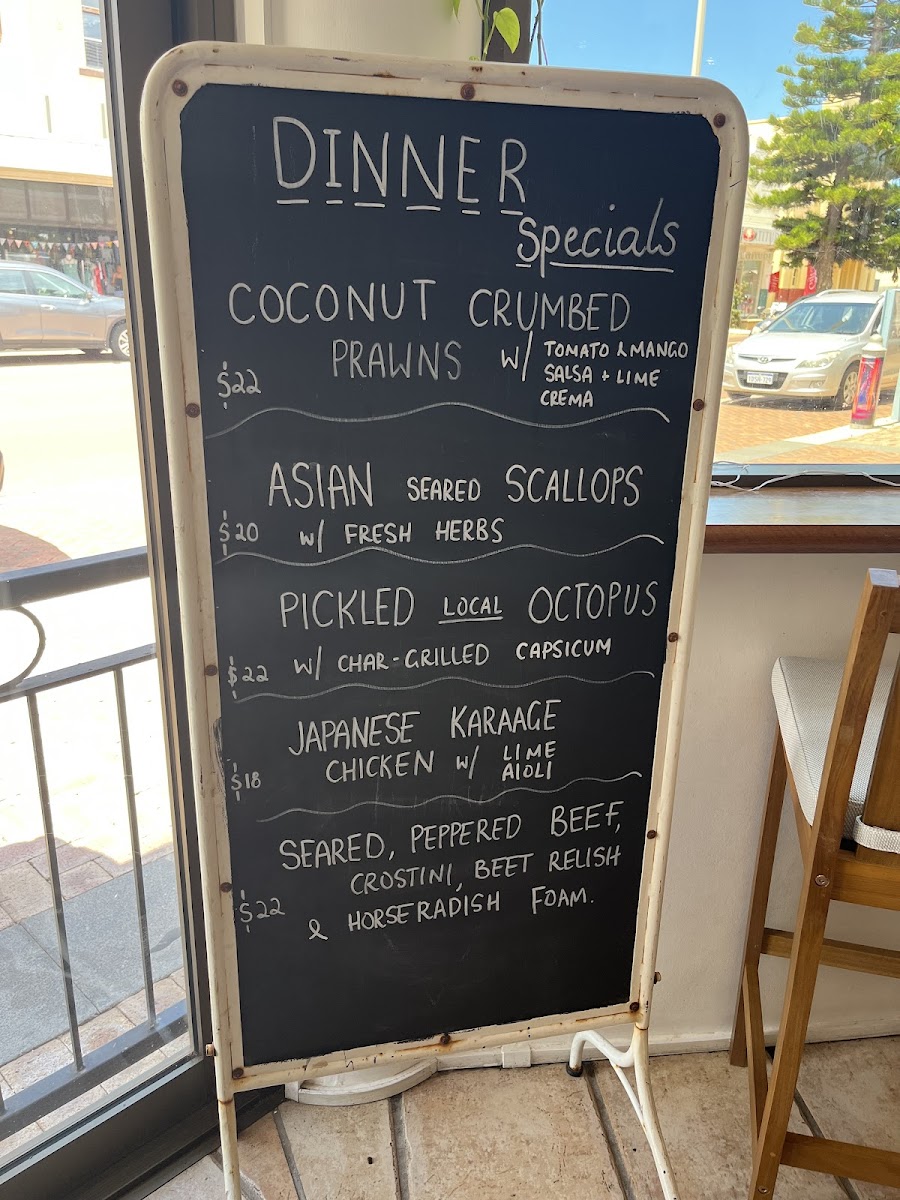 DINNER
Specials
COCONUT CRUMBED
PRAWNS W/ TOMATO & MANGO
SALSA + LIME
CREMA
$22
ASIAN SEARED SCALLOPS
$20 w/ FRESH HERBS
PICKLED LOCAL OCTOPUS
$22 W/ CHAR-GRILLED CAPSICUM
JAPANESE KARAAGE
CHICKEN W/ LIME
AIOLI
$18
SEARED, PEPPERED BEEF,
CROSTINI, BEET RELISH
$22 & HORSERADISH FOAM.